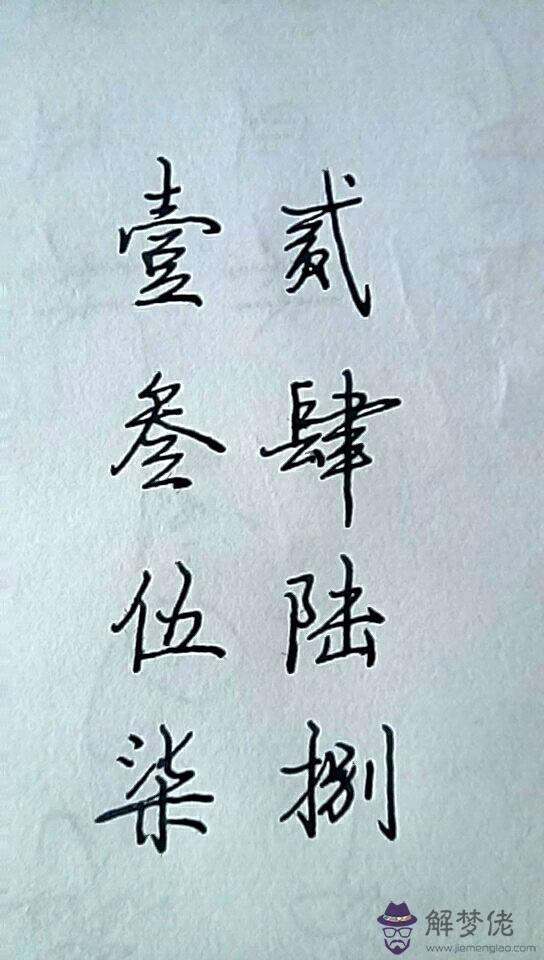 壹 贰
叁 肆
伍 陆
柒 捌
解梦佬
www.jiemenglao.com